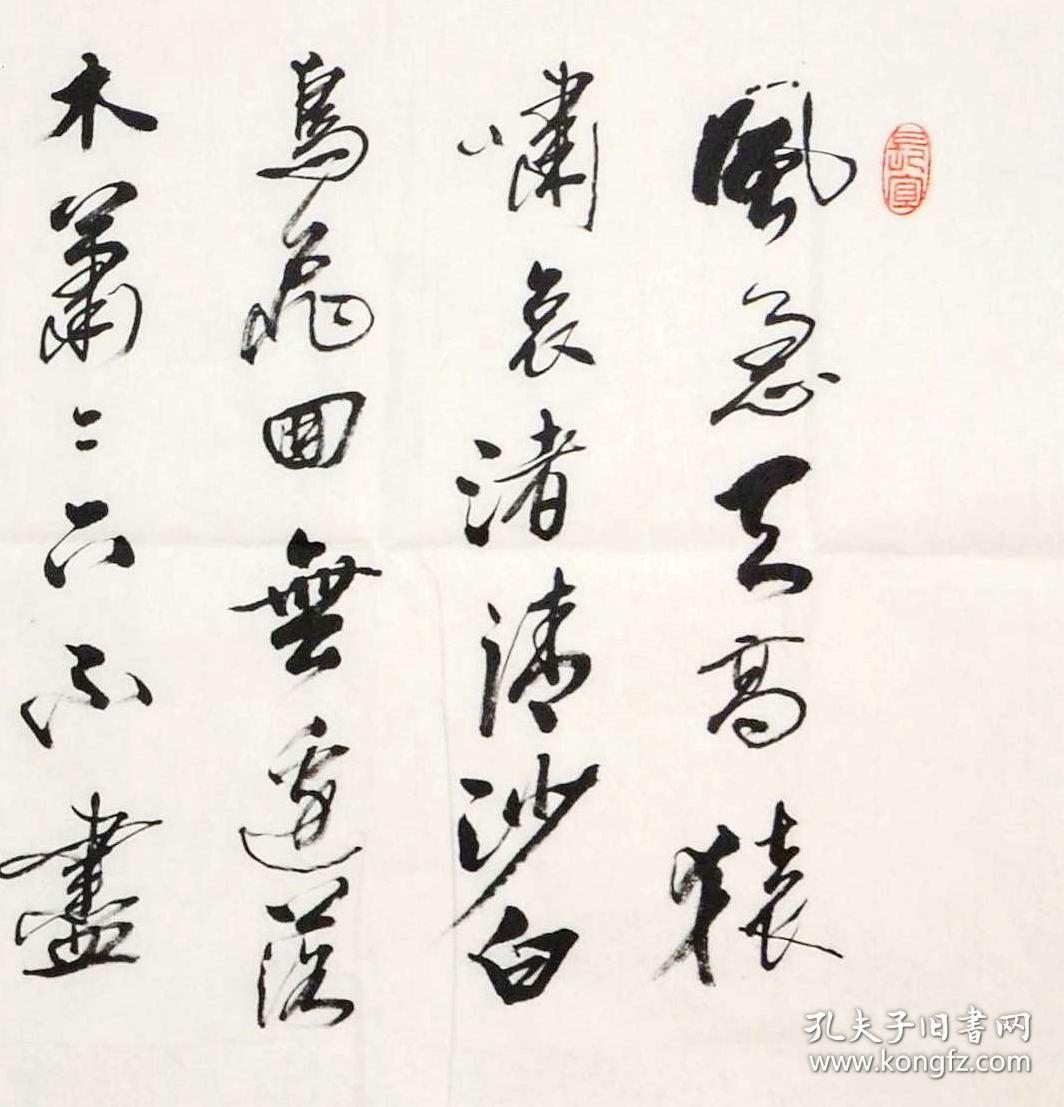 風急天高猿
嘯哀渚清沙白
鳥飛回無邊落
木蕭〻下不盡
長宜
孔夫子旧书网
www.kongfz.com